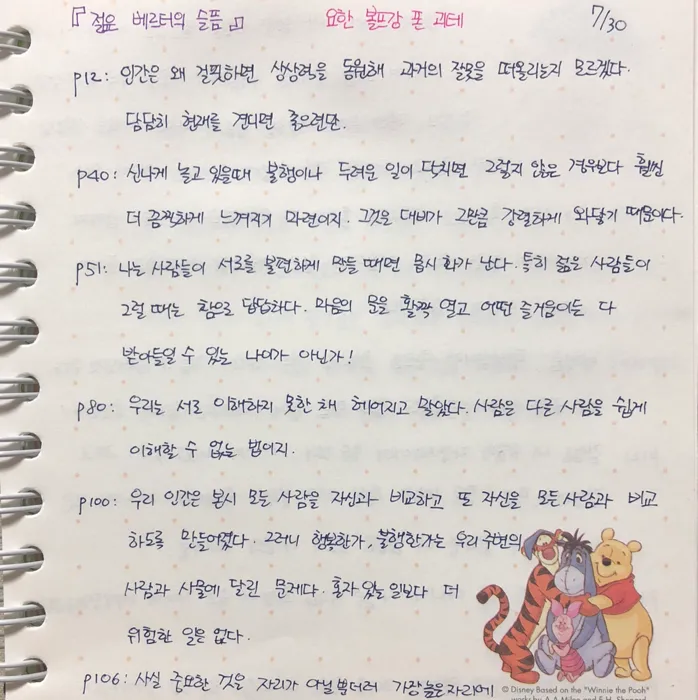 『젊은 베르터의 슬픔』 요한 볼프강 폰 괴테 7/30
p12: 인간은 왜 걸핏하면 상상력을 동원해 과거의 잘못을 떠올리는지 모르겠다.
담담히 현재를 견디면 좋으련만.
p40: 신나게 놀고 있을때 불행이나 두려운 일이 닥치면 그렇지 않은 경우보다 훨씬
더 끔찍하게 느껴지기 마련이지. 그것은 대비가 그만큼 강렬하게 와닿기 때문이다.
p51: 나는 사람들이 서로를 불편하게 만들 때면 몹시 화가 난다. 특히 젊은 사람들이
그럴 때는 참으로 답답하다. 마음의 문을 활짝 열고 어떤 즐거움이든 다
받아들일 수 있는 나이가 아닌가!
p80: 우리는 서로 이해하지 못한 채 헤어지고 말았다. 사람은 다른 사람을 쉽게
이해할 수 없는 법이지.
p100: 우리 인간은 본시 모든 사람을 자신과 비교하고 또 자신을 모든 사람과 비교
하도록 만들어졌다. 그러니 행복한가, 불행한가는 우리 주변의
사람과 사물에 달린 문제다. 혼자 있는 일보다 더
위험한 일은 없다.
p106: 사실 중요한 것은 자리가 아닐 뿐더러 가장 높은 자리에
© Disney Based on the "Winnie the Pooh"
works by A.A. Milne and E.H. Shepard